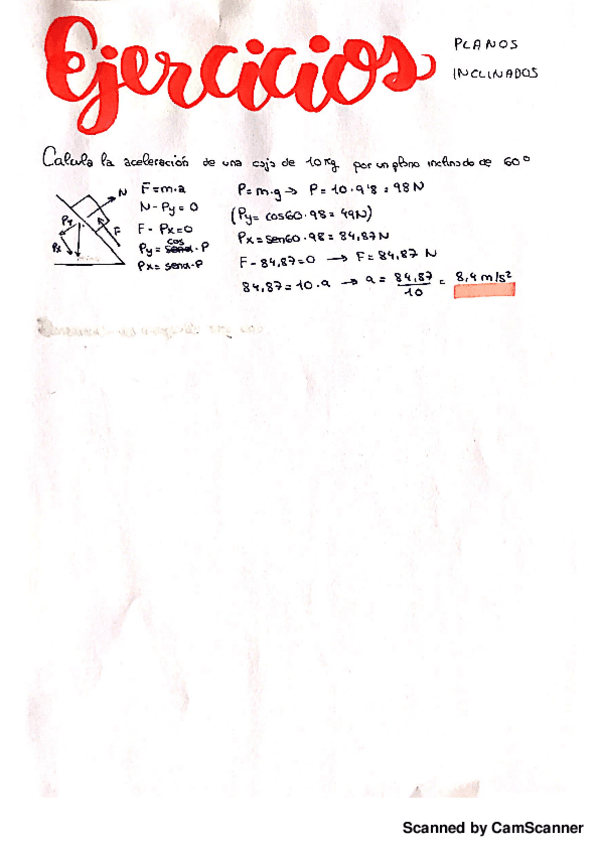 Ejercicios
PLANOS
INCLINADOS
Calcula la aceleración de una caja de 10Kg por un plano inclinado de 60º
N
F
Py
Px
F=m·a
N-Py=0
F-Px=0
Py=cos·P
Px=senα·P
P=m·g→ P=10·9'8=98N
(Py=cos60·98=49N)
Px=sen60·98=84,87N
F-84,87=0 → F=84,87 N
84,87=10·a → a=84,87/10=8,4m/s²
Scanned by CamScanner